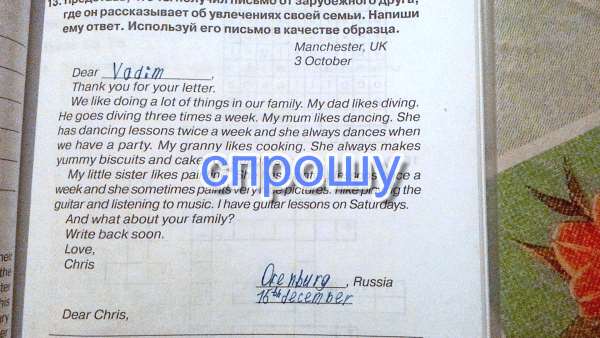 13. Представь, что ты получил письмо от зарубежного друга,
где он рассказывает об увлечениях своей семьи. Напиши
ему ответ. Используй его письмо в качестве образца.
Manchester, UK
3 October
Dear Vadim,
Thank you for your letter.
We like doing a lot of things in our family. My dad likes diving.
He goes diving three times a week. My mum likes dancing. She
has dancing lessons twice a week and she always dances when
we have a party. My granny likes cooking. She always makes
yummy biscuits and cake
спрошу
My little sister likes a
week and she sometimes paints very pictures. the
guitar and listening to music. I have guitar lessons on Saturdays.
And what about your family?
Write back soon.
Love,
Chris
Orenburg, Russia
16th december
Dear Chris,